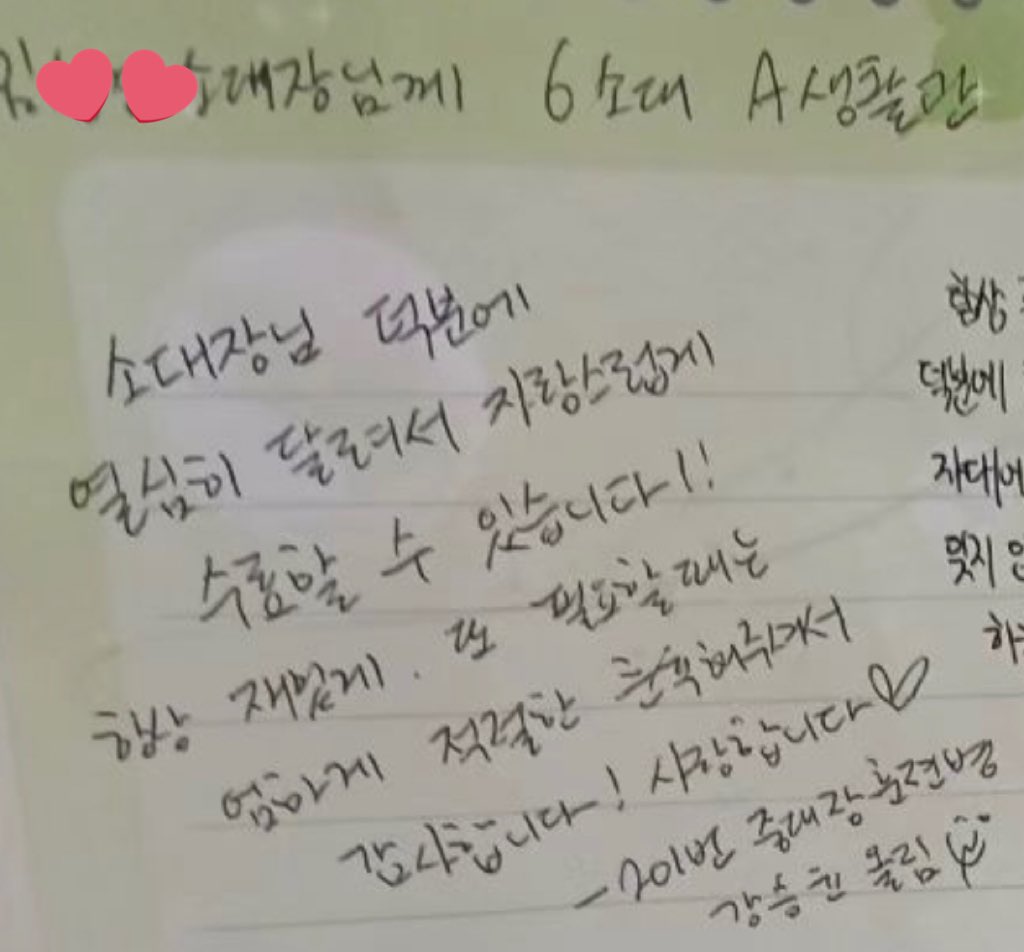 김 소대장님께 6소대 A생활관
소대장님 덕분에
열심히 달려서 자랑스럽게
수료할 수 있습니다!!
항상 재밌게. 또 필요할 때는
엄하게 적절한 훈육해주셔서
감사합니다! 사랑합니다♡
-201번 중대장 훈련병
강승 올림
항상
덕분에
자대에
잊지